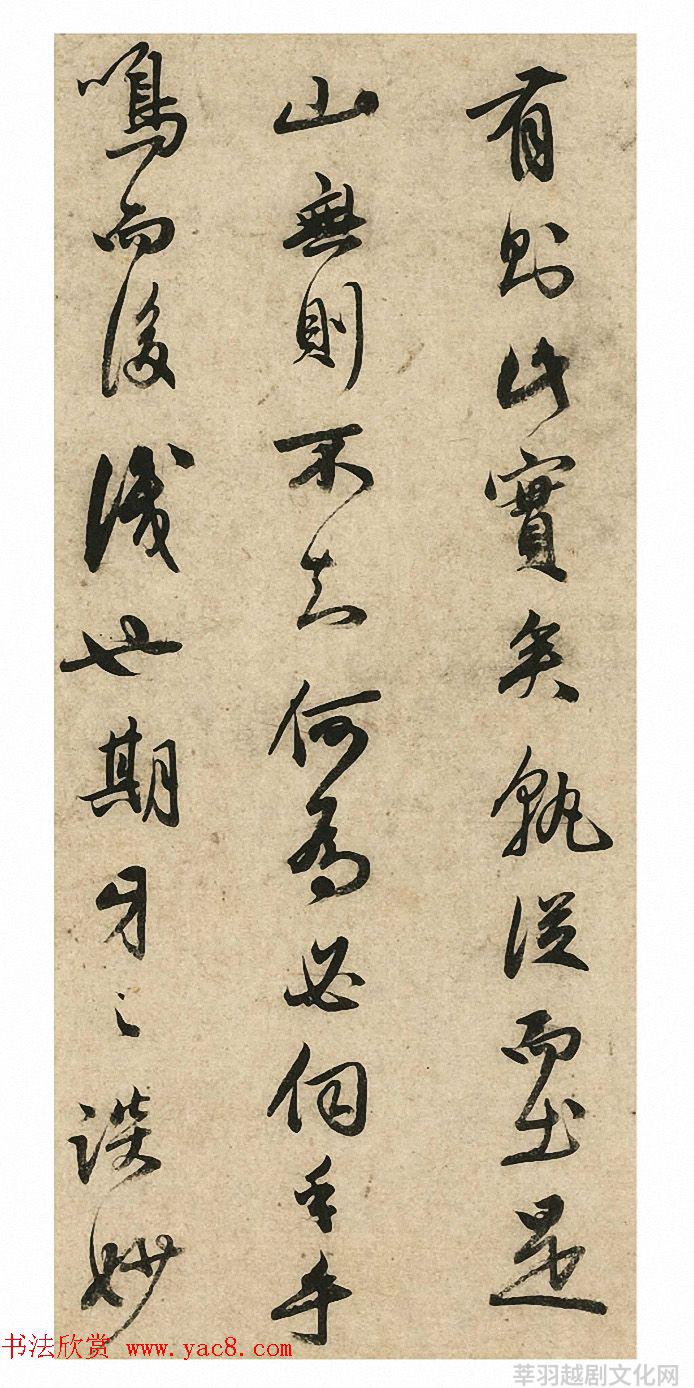 有則此實矣孰從而出是
山無則不何為必伺乎手
鳴而後識也期牙之談妙
书法欣赏 www.yac8.com
莘羽越剧文化网